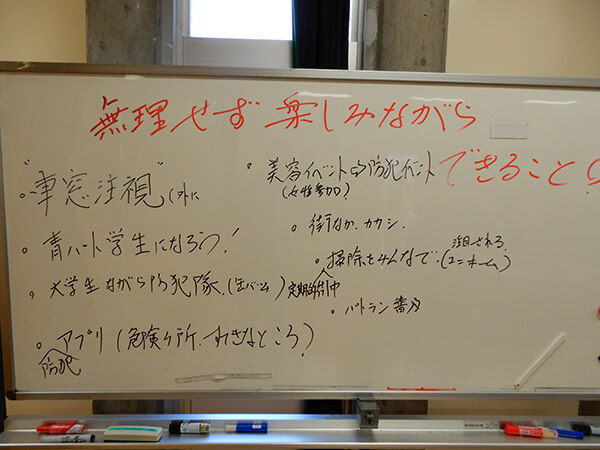 無理せず楽しみながら
できること!
"車窓注視"(外に
青パト学生になろう!
大学生ながら防犯隊.(缶バッジ)
アプリ(危険ヶ所.すてきなところ)
防犯
美容イベント⇨防犯イベント
(女性参加)
街なか.カカシ.
掃除をみんなで.(ユニホーム)
注目される
定期的 集中
パトラン